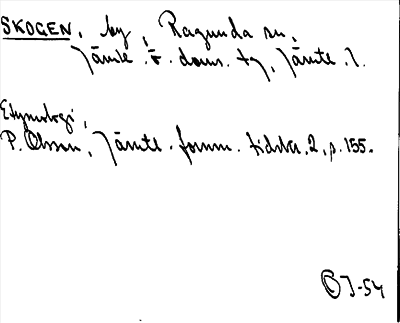 SKOGEN, by, Ragunda sn,
Jämte. ö. doms. tg, Jämte. l.
Etymologi,
P. Olsson, Jämtl. fornm. tidskr. 2, p. 155.
OJ-54